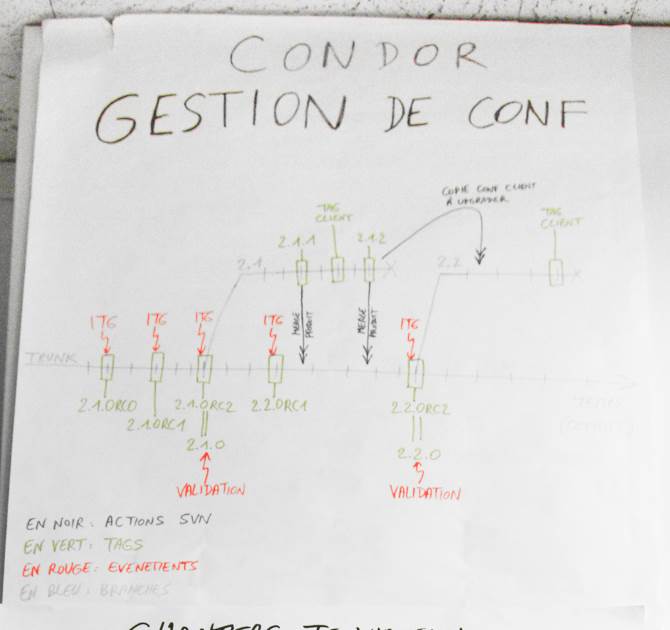 CONDOR
GESTION DE CONF
COPIE CONF CLIENT
A UPGRADER
TAG
CLIENT
TAG
CLIENT
2.1.1
2.1.2
2.1
2.2
MERGE
PRODUIT
MERGE
PRODUIT
ITG
ITG
ITG
ITG
ITG
TRUNK
2.1.0RC0
2.1.0RC1
2.1.0RC2
2.2.0RC1
2.2.0RC2
TEMPS
2.1.0
2.2.0
VALIDATION
VALIDATION
EN NOIR: ACTIONS SVN
EN VERT: TAGS
EN ROUGE: EVENEMENTS
EN BLEU: BRANCHES